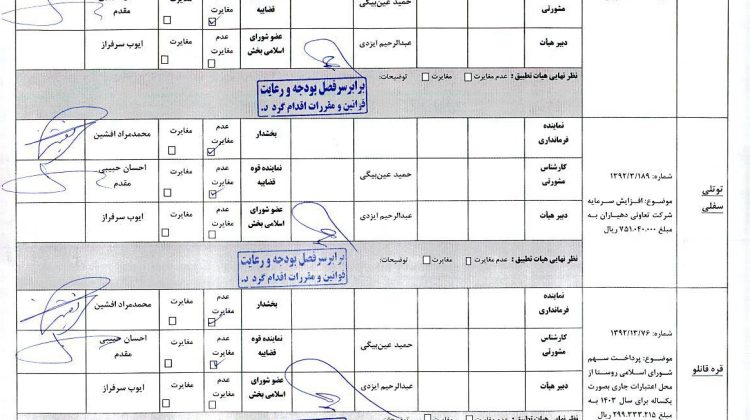 مغایرت
مغایرت
قضاییه
حمید عین‌بیگی
مشورتی
مقدم
ایوب سرفراز
عدم
مغایرت
عضو شورای
اسلامی بخش
عبدالرحیم ایزدی
دبیر هیأت
نظر نهایی هیات تطبیق: عدم مغایرت مغایرت توضیحات:
برابر سرفصل بودجه و رعایت
قوانین و مقررات اقدام گردد.
توتلی
سفلی
شماره: ۱۳۹۲/۳/۱۸۹
موضوع: افزایش سرمایه
شرکت تعاونی دهیاران به
مبلغ ۷۵۱.۰۴۰.۰۰۰ ریال
نماینده
فرمانداری
بخشدار
عدم
مغایرت
مغایرت
محمدمراد افشین
کارشناس
مشورتی
حمید عین‌بیگی
نماینده قوه
قضاییه
عدم
مغایرت
مغایرت
احسان حبیبی
مقدم
دبیر هیأت
عبدالرحیم ایزدی
عضو شورای
اسلامی بخش
عدم
مغایرت
مغایرت
ایوب سرفراز
نظر نهایی هیات تطبیق: عدم مغایرت مغایرت توضیحات:
برابر سرفصل بودجه و رعایت
قوانین و مقررات اقدام گردد.
قره قانلو
شماره: ۱۳۹۲/۱۳/۷۶
موضوع: پرداخت سهم
شورای اسلامی روستا از
محل اعتبارات جاری بصورت
یکساله برای سال ۱۴۰۳ به
مبلغ ۲۹۹.۳۳۳.۲۱۵ ریال
نماینده
فرمانداری
بخشدار
عدم
مغایرت
مغایرت
محمدمراد افشین
کارشناس
مشورتی
حمید عین‌بیگی
نماینده قوه
قضاییه
عدم
مغایرت
مغایرت
احسان حبیبی
مقدم
دبیر هیأت
عبدالرحیم ایزدی
عضو شورای
اسلامی بخش
عدم
مغایرت
مغایرت
ایوب سرفراز
نظر نهایی هیات تطبیق: عدم مغایرت مغایرت توضیحات: